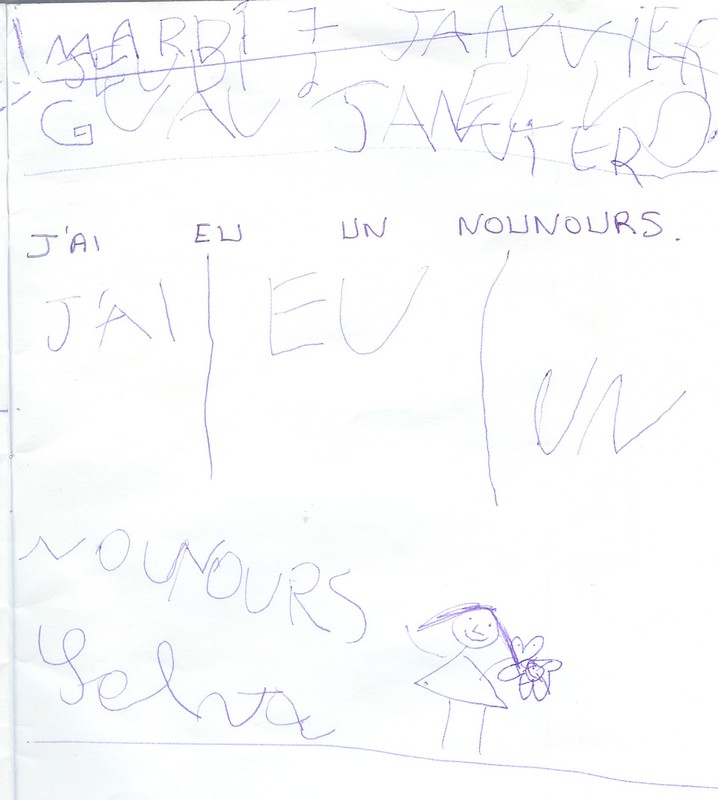 MARDI 7 JANVIER
JEUDI 2
JANVIER
J'AI EU UN NOUNOURS.
J'AI EU
UN
NOUNOURS
Selva